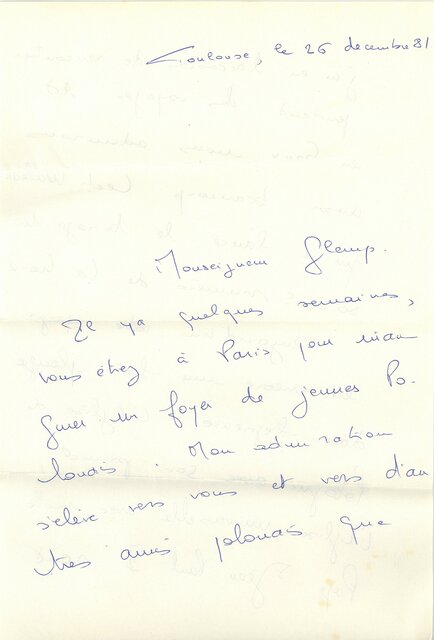 Toulouse, le 26 decembre 81
Monseigneur Glemp.
Il y a quelques semaines,
vous étiez à Paris pour inau
gurer un foyer de jeunes Po-
lonais. Mon admiration
s'élève vers vous et vers d'au
tres amis polonais que